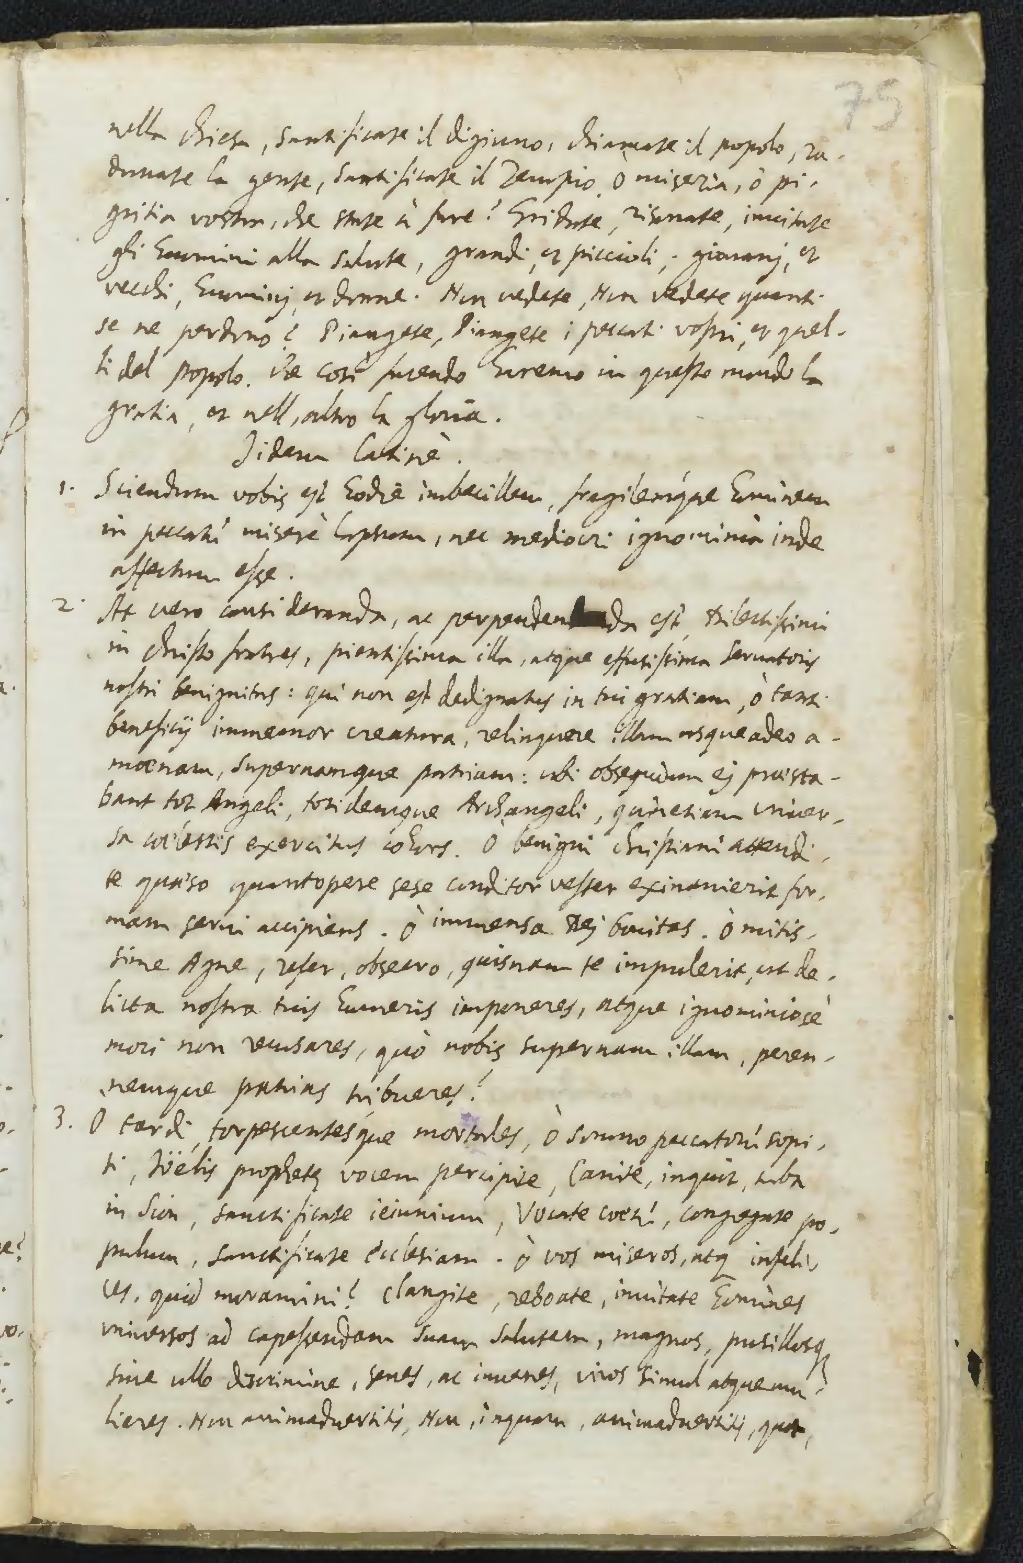 75
nella chiesa, santificate il digiuno, chiamate il popolo, ra-
dunate la gente, santificate il Tempio. O miseria, ò pi-
gritia vostra, che state à fare? Gridate, risonate, invitate
gli huomini alla salute, grandi, et piccioli, giovanj, et
vecchi, huominj, et donne. Non vedete, Non vedete quanti
se ne perdono? Piangete, Piangete i peccati vostri, et quel-
li del popolo. Che così facendo haremo in questo mondo la
gratia, et nell'altro la gloria.
Jidem Latinè.
1. Sciendum vobis est hodiè imbecillem, fragilemque hominem
in peccatū miserè lapsum, nec mediocri ignominia inde
affectum esse.
2. At vero consideranda, ac perpendenda est, Dilectissimi
in christo fratres, pientissima illa, atque effusissima Servatoris
nostri benignitas: qui non est dedignatus in tui gratiam, ò tanti
beneficij immemor creatura, relinquere illam usque adeo a-
moenam, supernamque patriam: ubi obsequium ej praesta-
bant tot Angeli, totidemque Archangeli, quinetiam univer-
sa coelestis exercitus cohors. O benigni christiani attendi-
te quaeso quantopere sese conditor vester exinanierit for-
mam servi accipiens. Ò immensa Dej bonitas. Ò mitis-
sime Agne, refer, obsecro, quisnam te impulerit, ut de-
licta nostra tuis humeris imponeres, atque ignominiosè
mori non recusares, quò nobis supernam illam, peren-
nemque patriam tribueres?
3. O tardi, torpescentesque mortales, ò somno peccatorū sopi-
ti, Joëlis prophetę vocem percipite, Canite, inquit, tuba
in Sion, sanctificate ieiunium, Vocate coetū, congregate po-
pulum, sanctificate Ecclesiam. ò vos miseros, atq infeli-
ces, quid moramini? Clangite, reboate, invitate homines
universos ad capessendam suam salutem, magnos, pusillosq
sine ullo discrimine, senes, ac iuvenes, viros simul atque mu-
lieres. Non animadvertitis, Non, inquam, animadvertitis, quot,